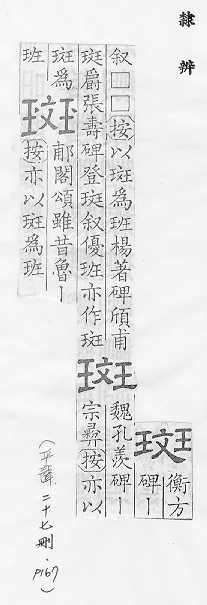 隸辨
斑
衡方
碑丨
叙□□按以斑為班楊著碑頎甫
斑爵張壽碑登斑叙優班亦作斑
斑
魏孔羨碑丨
宗彝按亦以
斑為
班
斑
郙閣頌雖昔魯丨
按亦以斑為班
（平聲 二十七刪．P167）